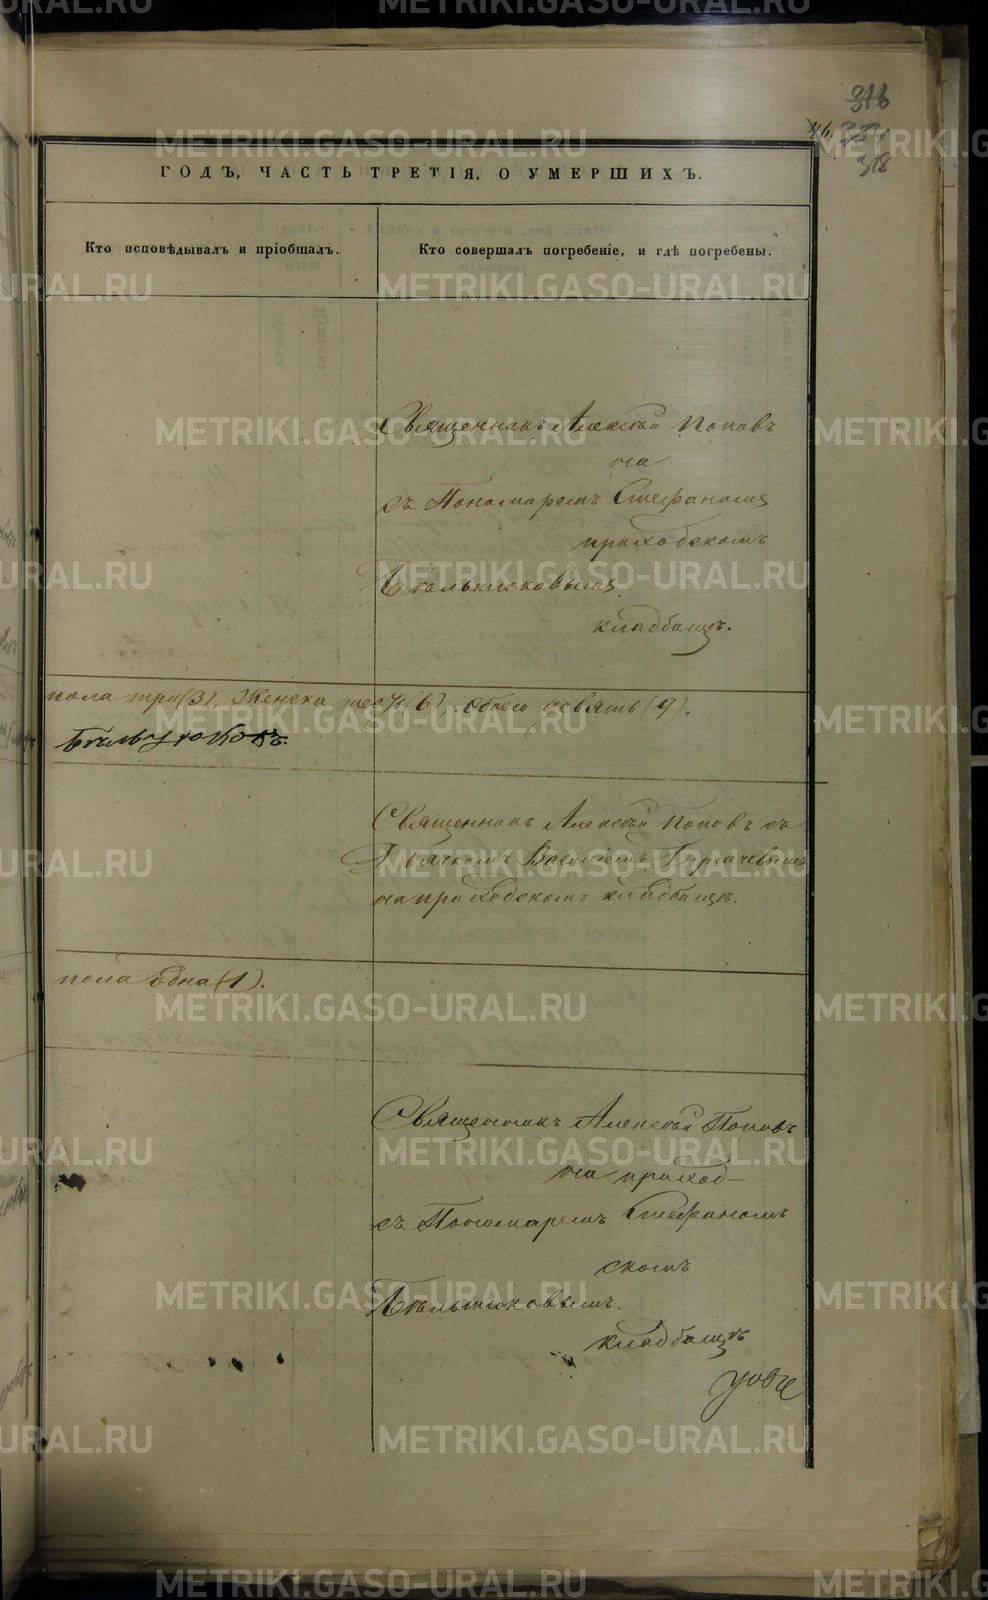 316
46.
318
ГОДЪ, ЧАСТЬ ТРЕТІЯ, О УМЕРШИХЪ.
Кто исповѣдывалъ и пріобщалъ.
Кто совершалъ погребеніе, и гдѣ погребены.
Священникъ Алексѣй Поповъ
на
съ Пономаремъ Стефаномъ
приходскомъ
Бѣльтюковымъ
кладбищѣ.
пола три(3), Женска шесть(6). обоего девять(9).
Бѣльтюковъ.
Священникъ Алексѣй Поповъ съ
Дьячкомъ Василіемъ
на приходскомъ кладбищѣ.
пола одна(1).
Священникъ Алексѣй Поповъ
на приход-
съ Пономаремъ Стефаномъ
скомъ
Бѣльтюковымъ.
кладбищѣ
METRIKI.GASO-URAL.RU